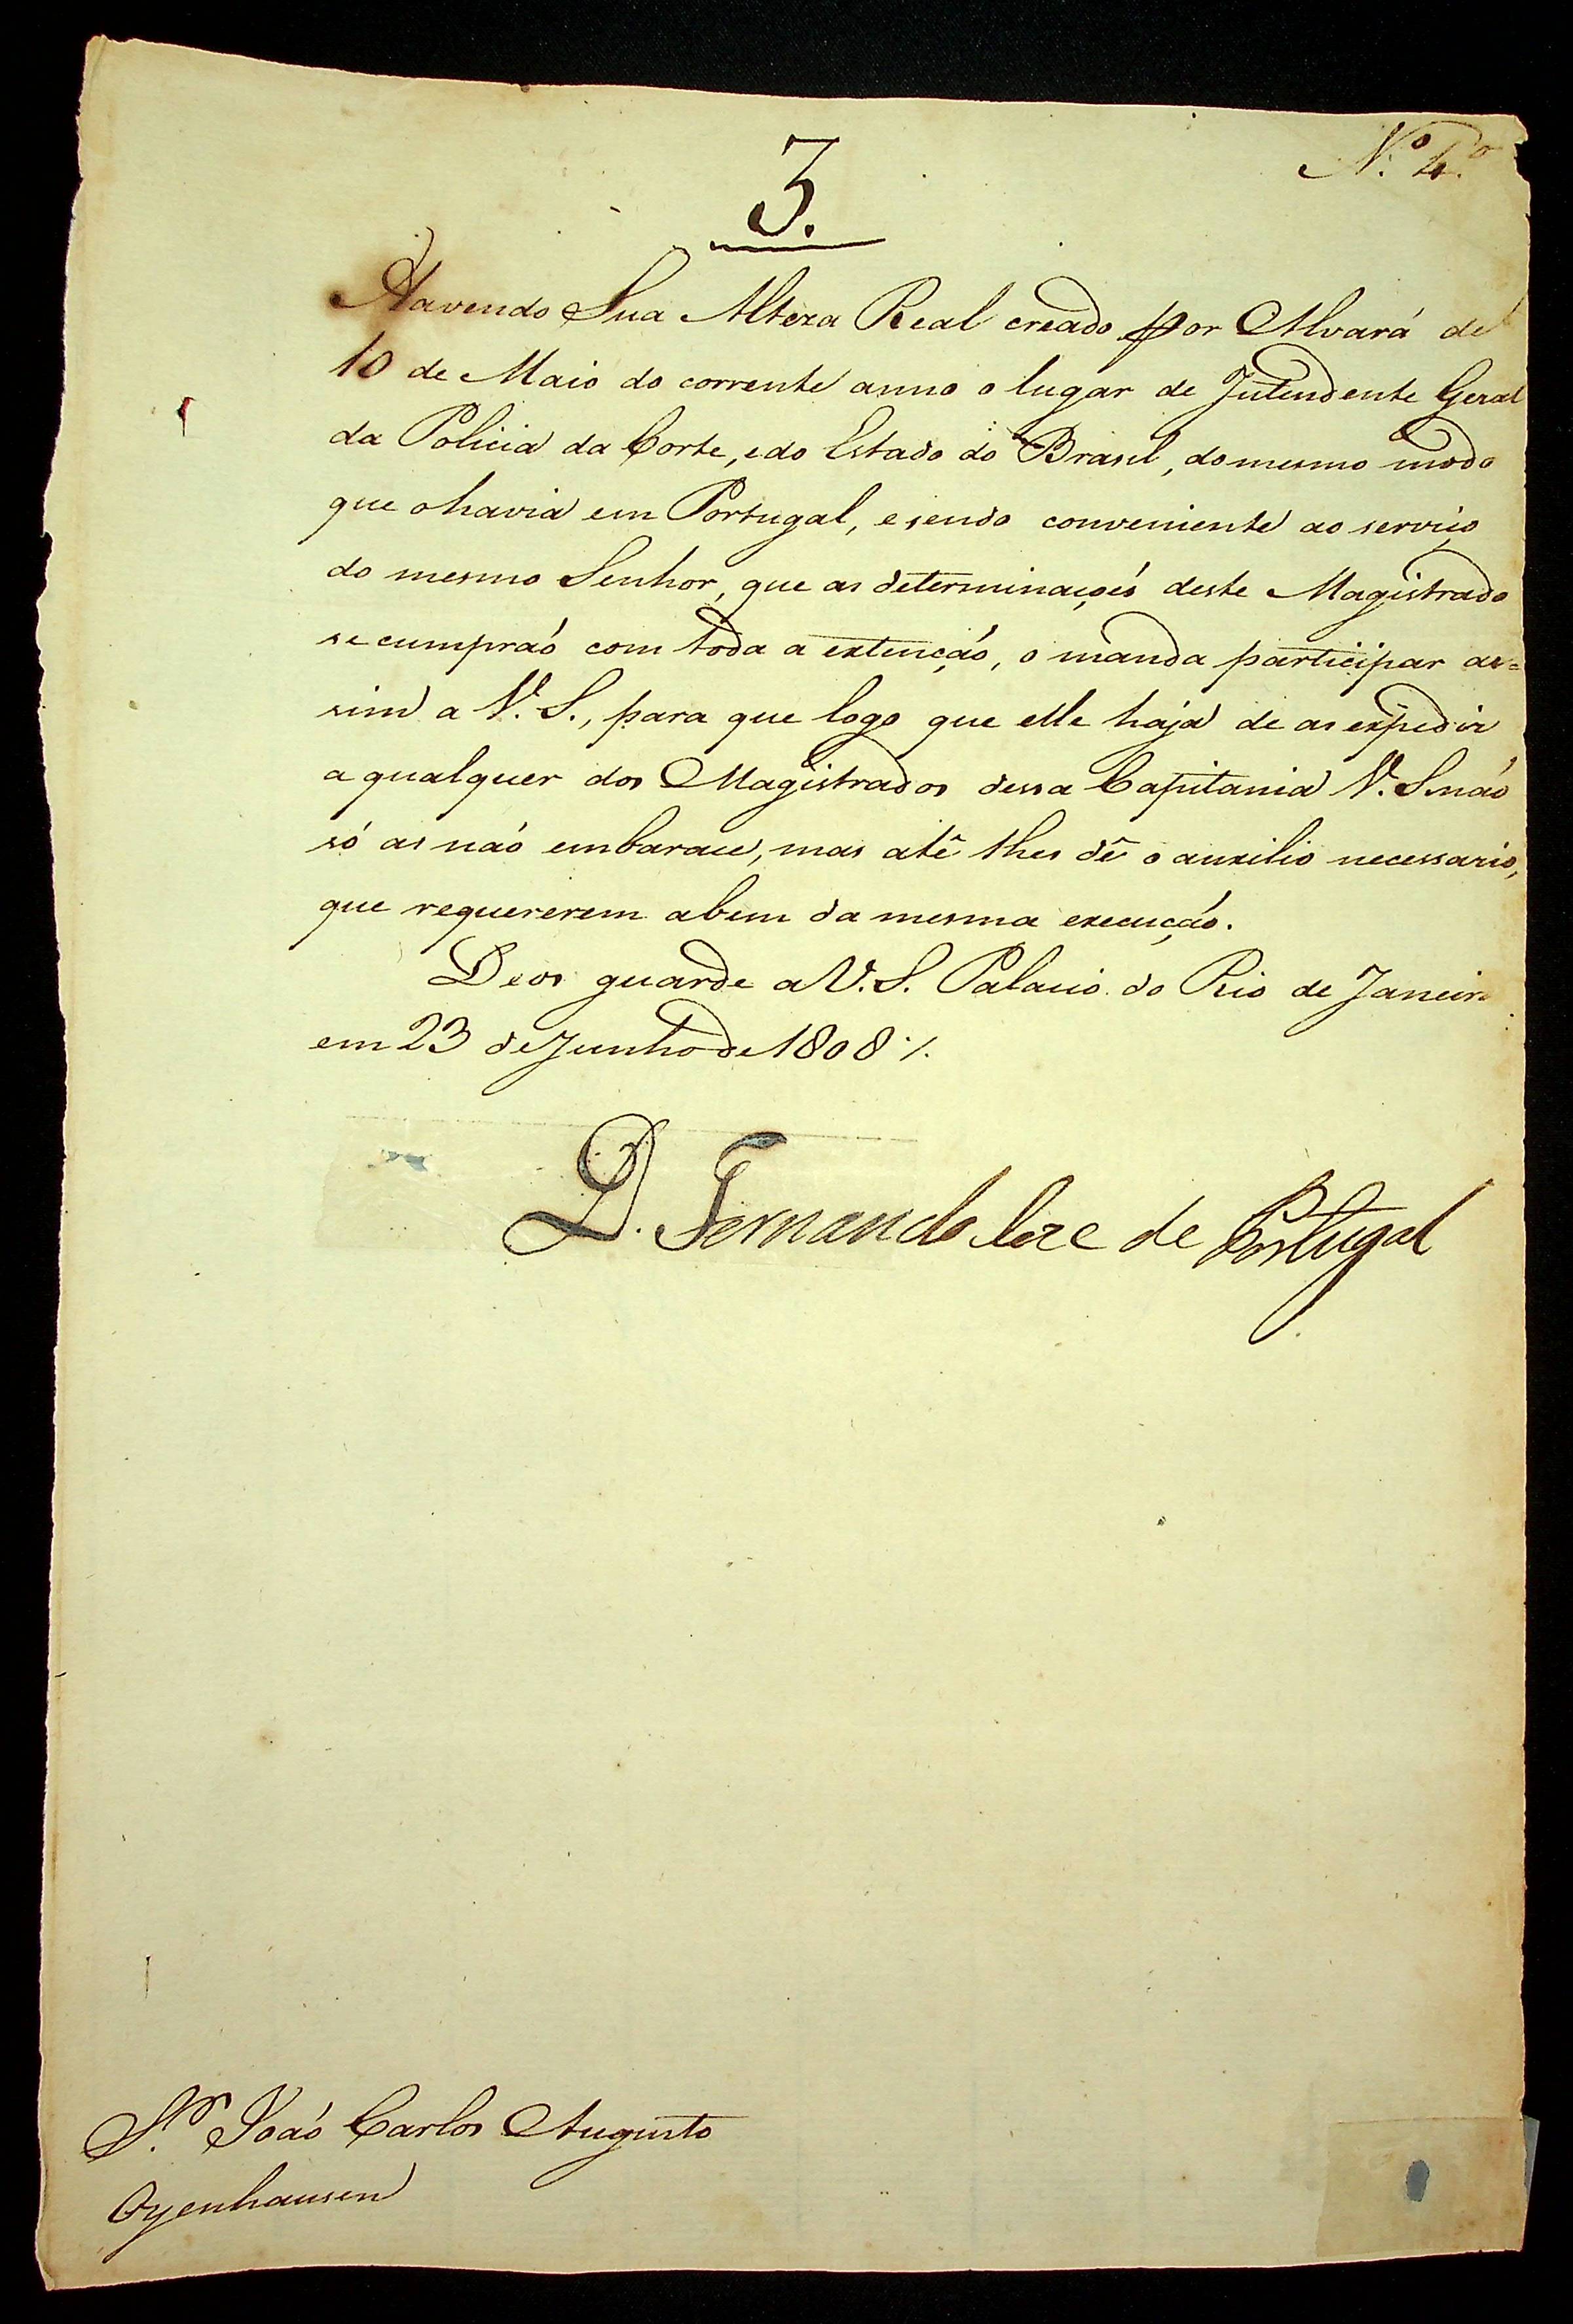 N.º 4.º
3.
Havendo Sua Alteza Real creado por Alvará de
10 de Maio do corrente anno o lugar de Intendente Geral
da Policia da Corte, e do Estado do Brasil, do mesmo modo
que o havia em Portugal, e sendo conveniente ao serviço
do mesmo Senhor, que as determinaçoẽs deste Magistrado
se cumpraõ com toda a extençaõ, o manda participar as=
sim a V. S., para que logo que elle haja de as expedir
a qualquer dos Magistrados dessa Capitania V. S. naõ
só as naõ embarace, mas atê lhes dê o auxilio necessario,
que requererem a bem da mesma execuçaõ.
Deos guarde a V. S. Palacio do Rio de Janeiro
em 23 de Junho de 1808 ·/.
D. Fernando Joze de Portugal
S.ʳ Joaõ Carlos Augusto
Oyenhausen